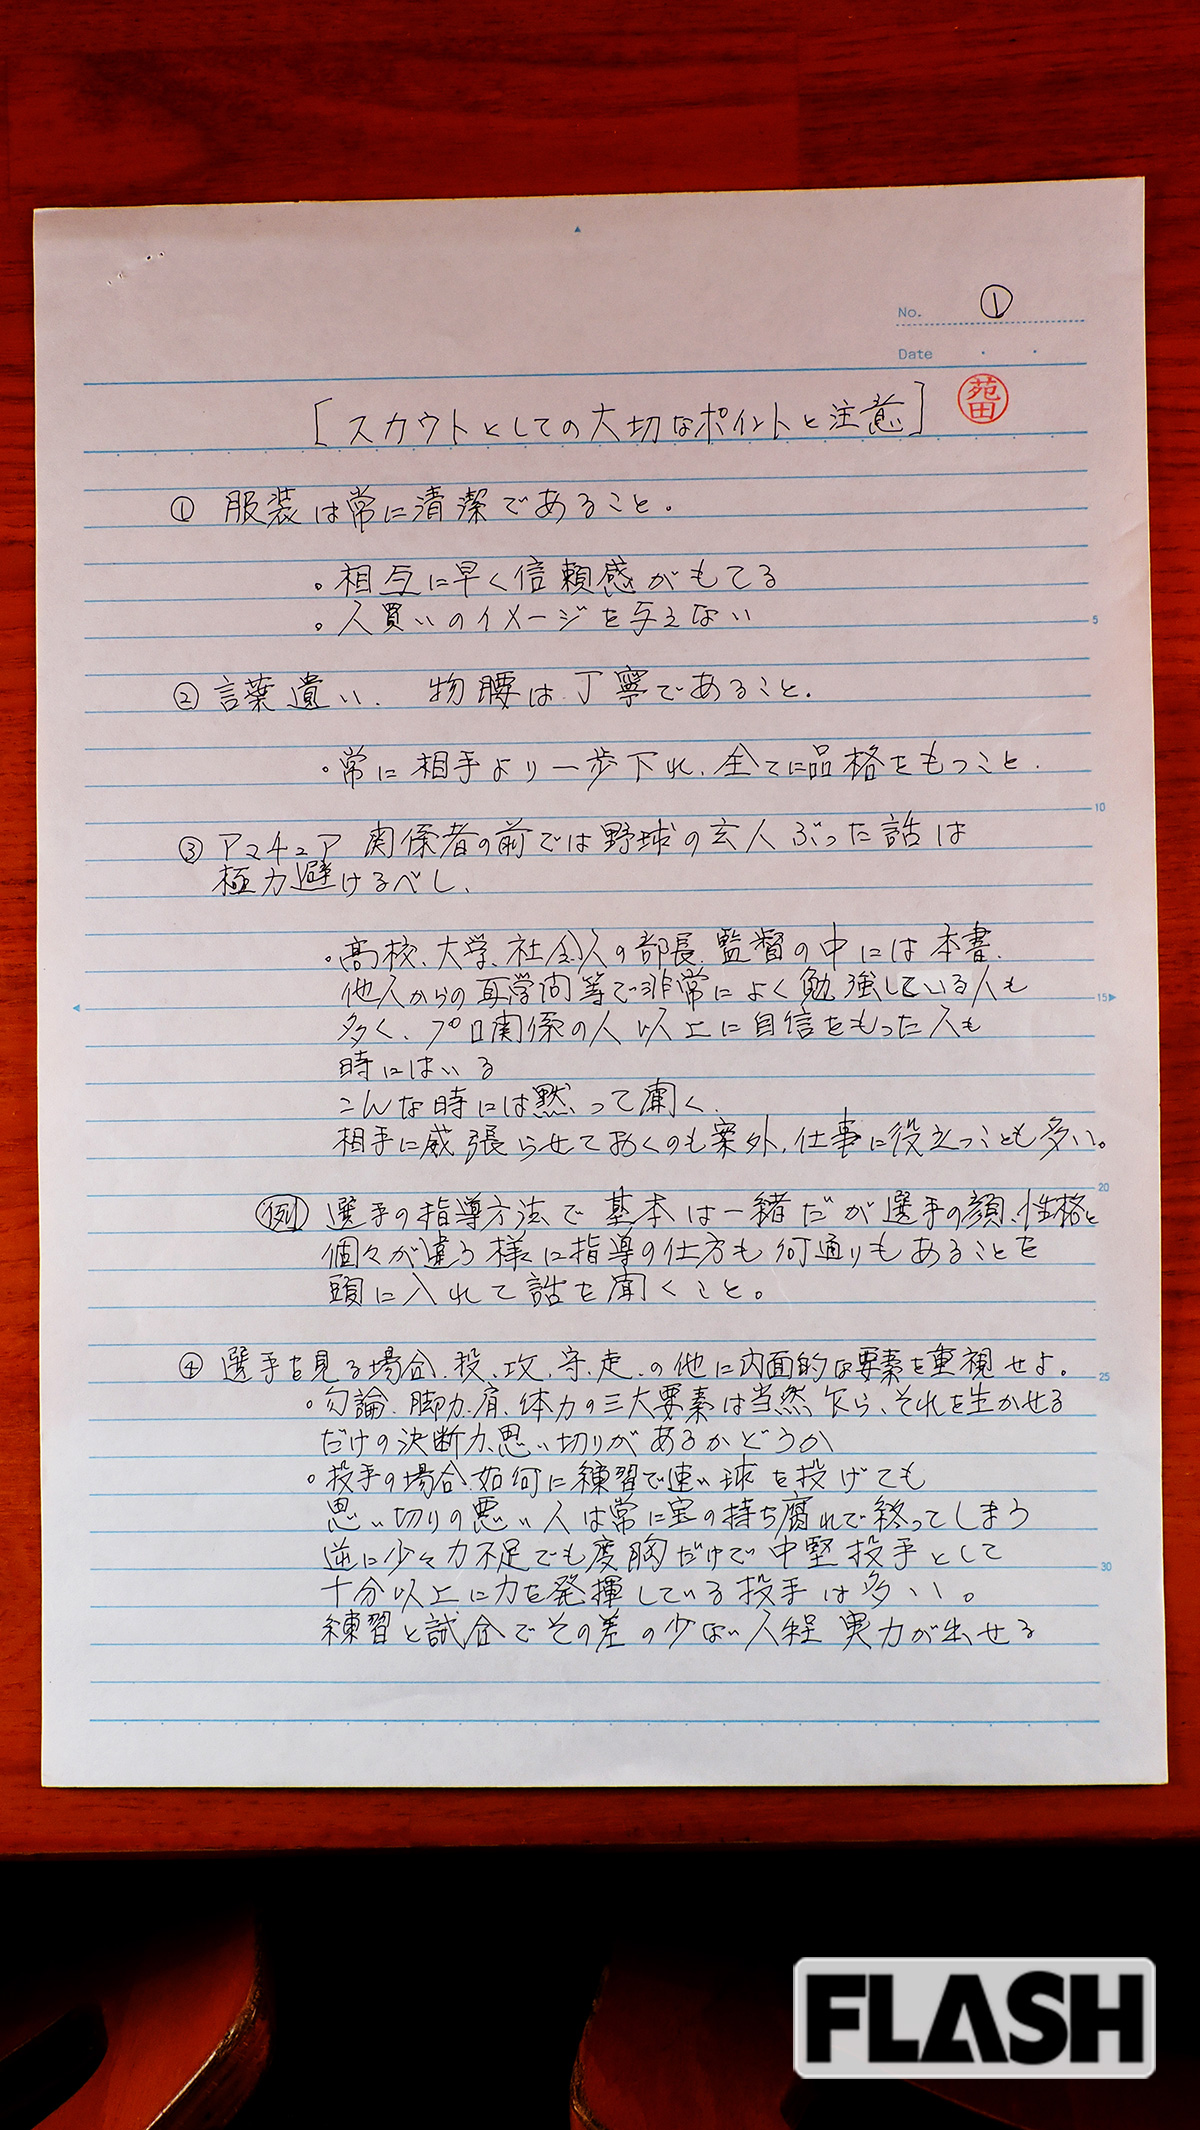 No. ①
Date
苑田
[スカウトとしての大切なポイントと注意]
① 服装は常に清潔であること。
・相互に早く信頼感がもてる
・人買いのイメージを与えない
② 言葉遣い、物腰は丁寧であること。
・常に相手より一歩下れ、全てに品格をもつこと.
③ アマチュア関係者の前では野球の玄人ぶった話は
極力避けるべし、
・高校、大学、社会人の部長、監督の中には本書、
他人からの耳学問等で非常によく勉強している人も
多く、プロ関係の人以上に自信をもった人も
時にはいる
こんな時には黙って聞く、
相手に威張らせておくのも案外、仕事に役立つことも多い。
例 選手の指導方法で基本は一緒だが選手の顔、性格と
個々が違う様に指導の仕方も何通りもあることを
頭に入れて話を聞くこと。
④ 選手を見る場合、投、攻、守、走、の他に内面的な要素を重視せよ。
・勿論、脚力、肩、体力の三大要素は当然、乍ら、それを生かせる
だけの決断力、思い切りがあるかどうか
・投手の場合、如何に練習で速い球を投げても
思い切りの悪い人は常に宝の持ち腐れで終ってしまう
逆に少々力不足でも度胸だけで中堅投手として
十分以上に力を発揮している投手は多い。
練習と試合でその差の少ない人程実力が出せる
5
10
15
20
25
30
FLASH